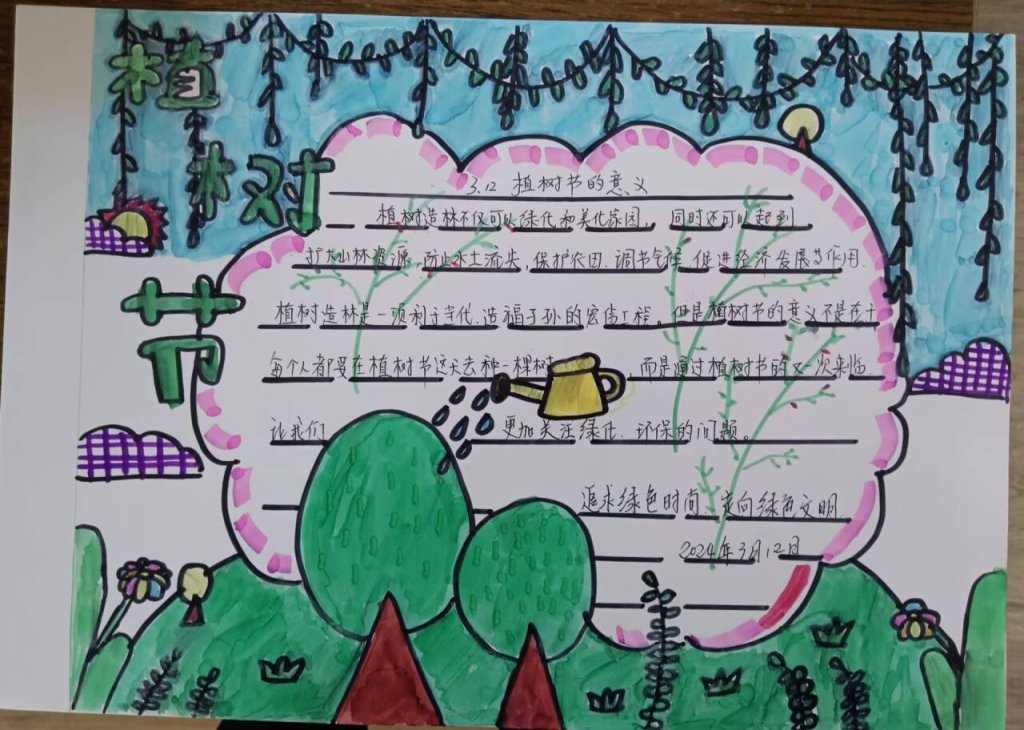 植树节
3.12 植树节的意义
植树造林不仅可以绿化和美化家园,同时还可以起到
扩大山林资源,防止水土流失,保护农田,调节气候,促进经济发展等作用.
植树造林是一项利于当代.造福子孙的宏伟工程。但是植树节的意义不是在于
每个人都要在植树节这天去种一棵树,而是通过植树节的又一次来临.
让我们更加关注绿化.环保的问题。
追求绿色时间,走向绿色文明.
2024年3月12日